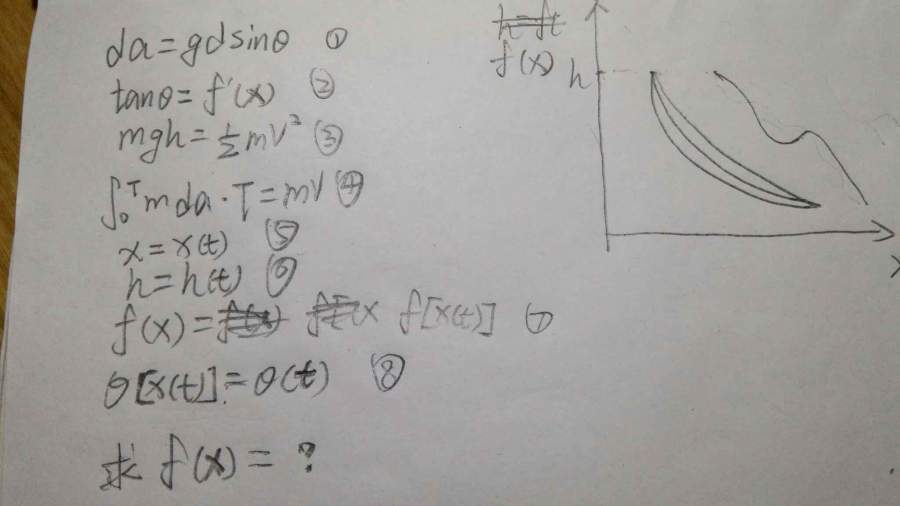 da=gdsinθ ①
tanθ=f'(x) ②
mgh=½mV² ③
∫₀ᵀmda·T=mV ④
x=x(t) ⑤
h=h(t) ⑥
f(x)= f[x(t)] ⑦
θ[x(t)]=θ(t) ⑧
求 f(x)=?
f(x)
h
x